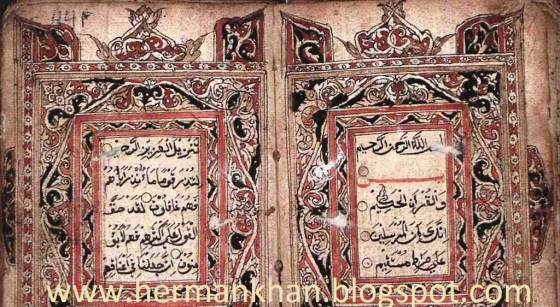 بسم الله الرحمن الرحيم
يس
والقرآن الحكيم
انك لمن المرسلين
على صراط مستقيم
تنزيل العزيز الرحيم
لتنذر قوما ما أنذر اباؤهم
فهم غافلون لقد حق
القول على اكثرهم فهم لا يؤ
منون انا جعلنا في اعناقهم
www.hermankhan.blogspot.com